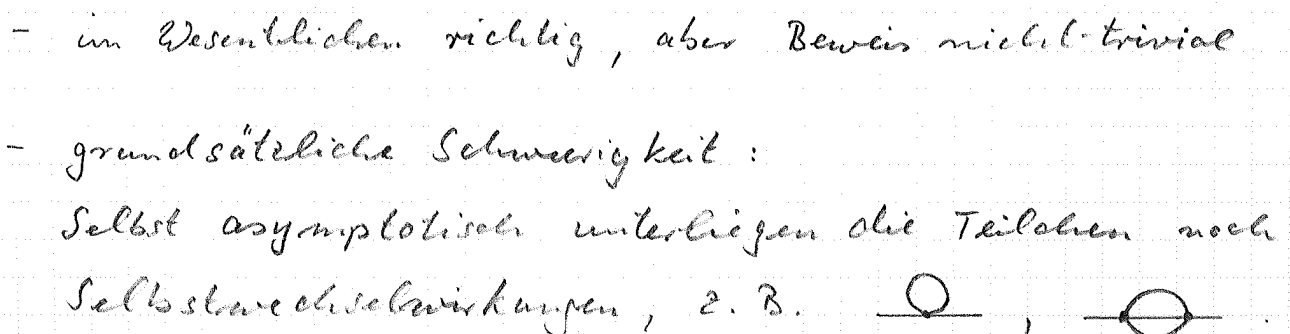 - im Wesentlichen richtig, aber Beweis nicht-trivial
- grundsätzliche Schwierigkeit:
Selbst asymptotisch unterliegen die Teilchen noch
Selbstwechselwirkungen, z.B. , .